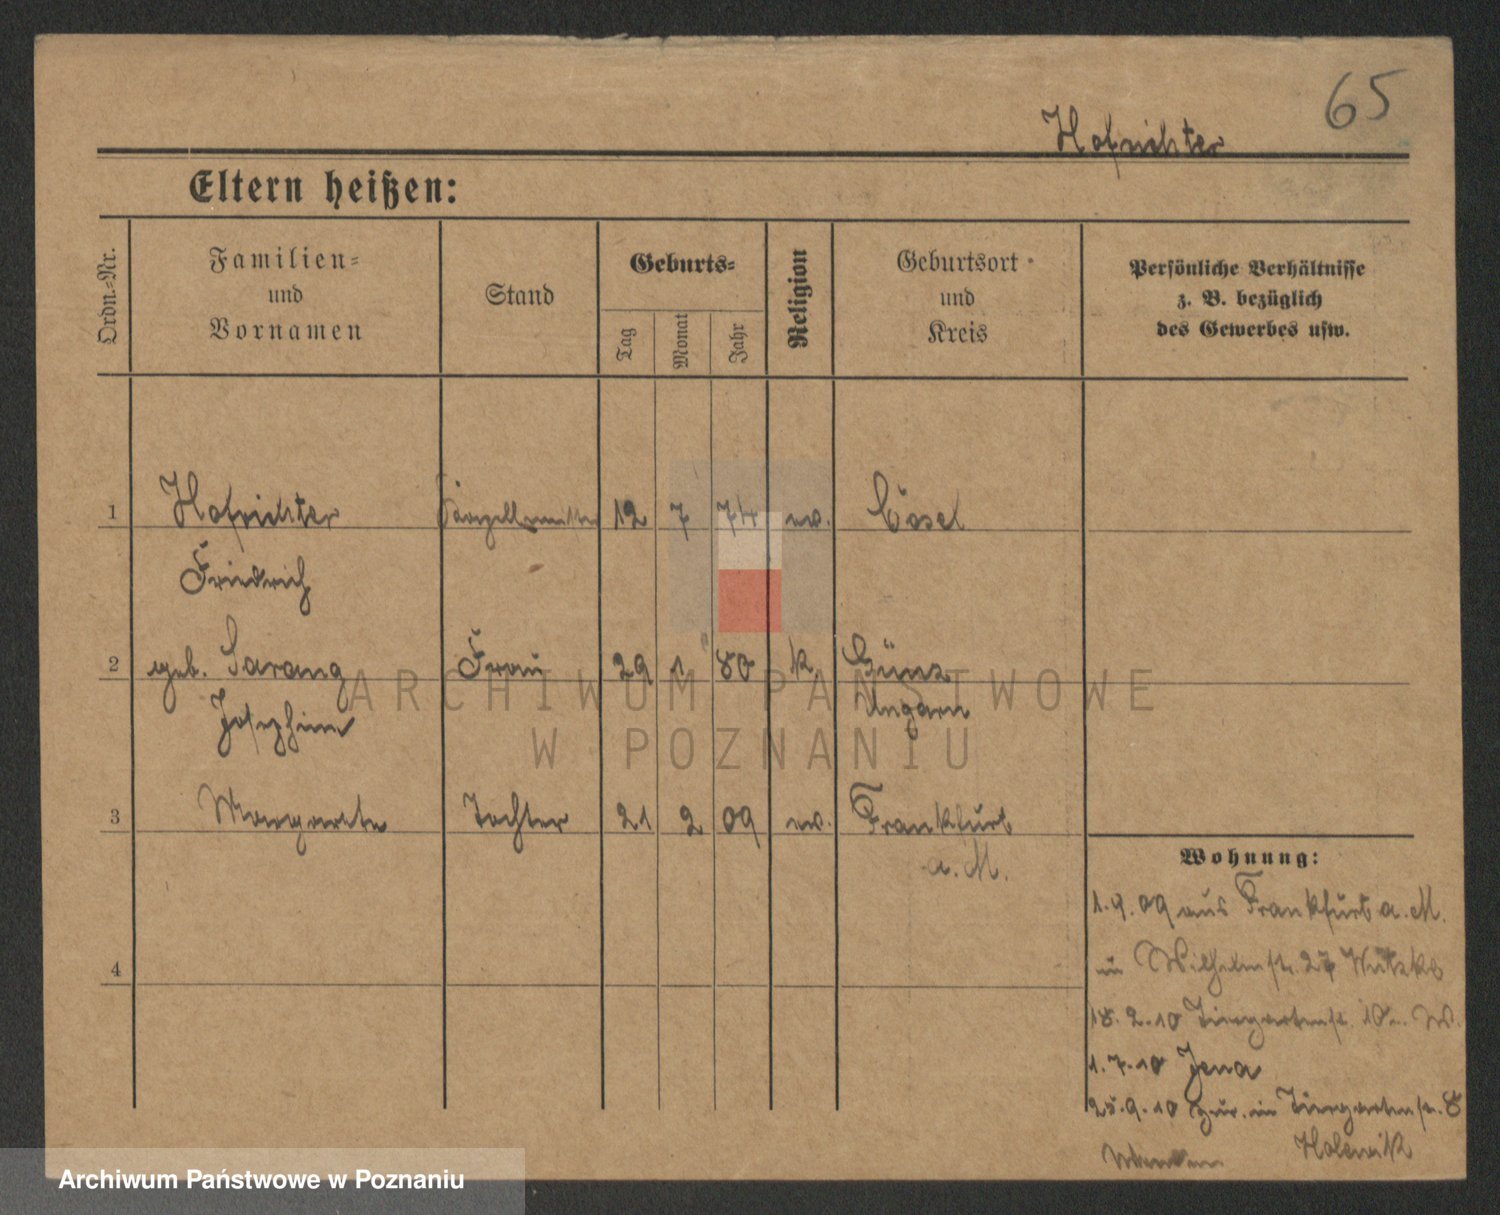 65
Hofrichter
Eltern heißen:
Ordn.-Nr.
Familien-
und
Vornamen
Stand
Geburts-
Tag
Monat
Jahr
Religion
Geburtsort
und
Kreis
Persönliche Verhältnisse
z. B. bezüglich
des Gewerbes usw.
1 Hofrichter 12 7 74 ev. Cosel
Friedrich
2 geb. Sarang Frau 29 1 80 k. Günz
Josephine Ungarn
3 Margarete Tochter 21 2 09 ev. Frankfurt
a. M.
4
Wohnung:
1.9.09 aus Frankfurt a. M.
in Wilhelmstr. 27
18.2.10 Tiergartenstr. 10
1.7.10 Jena
25.9.10 zur. in Tiergartenstr. 8
ARCHIWUM PAŃSTWOWE
W POZNANIU
Archiwum Państwowe w Poznaniu